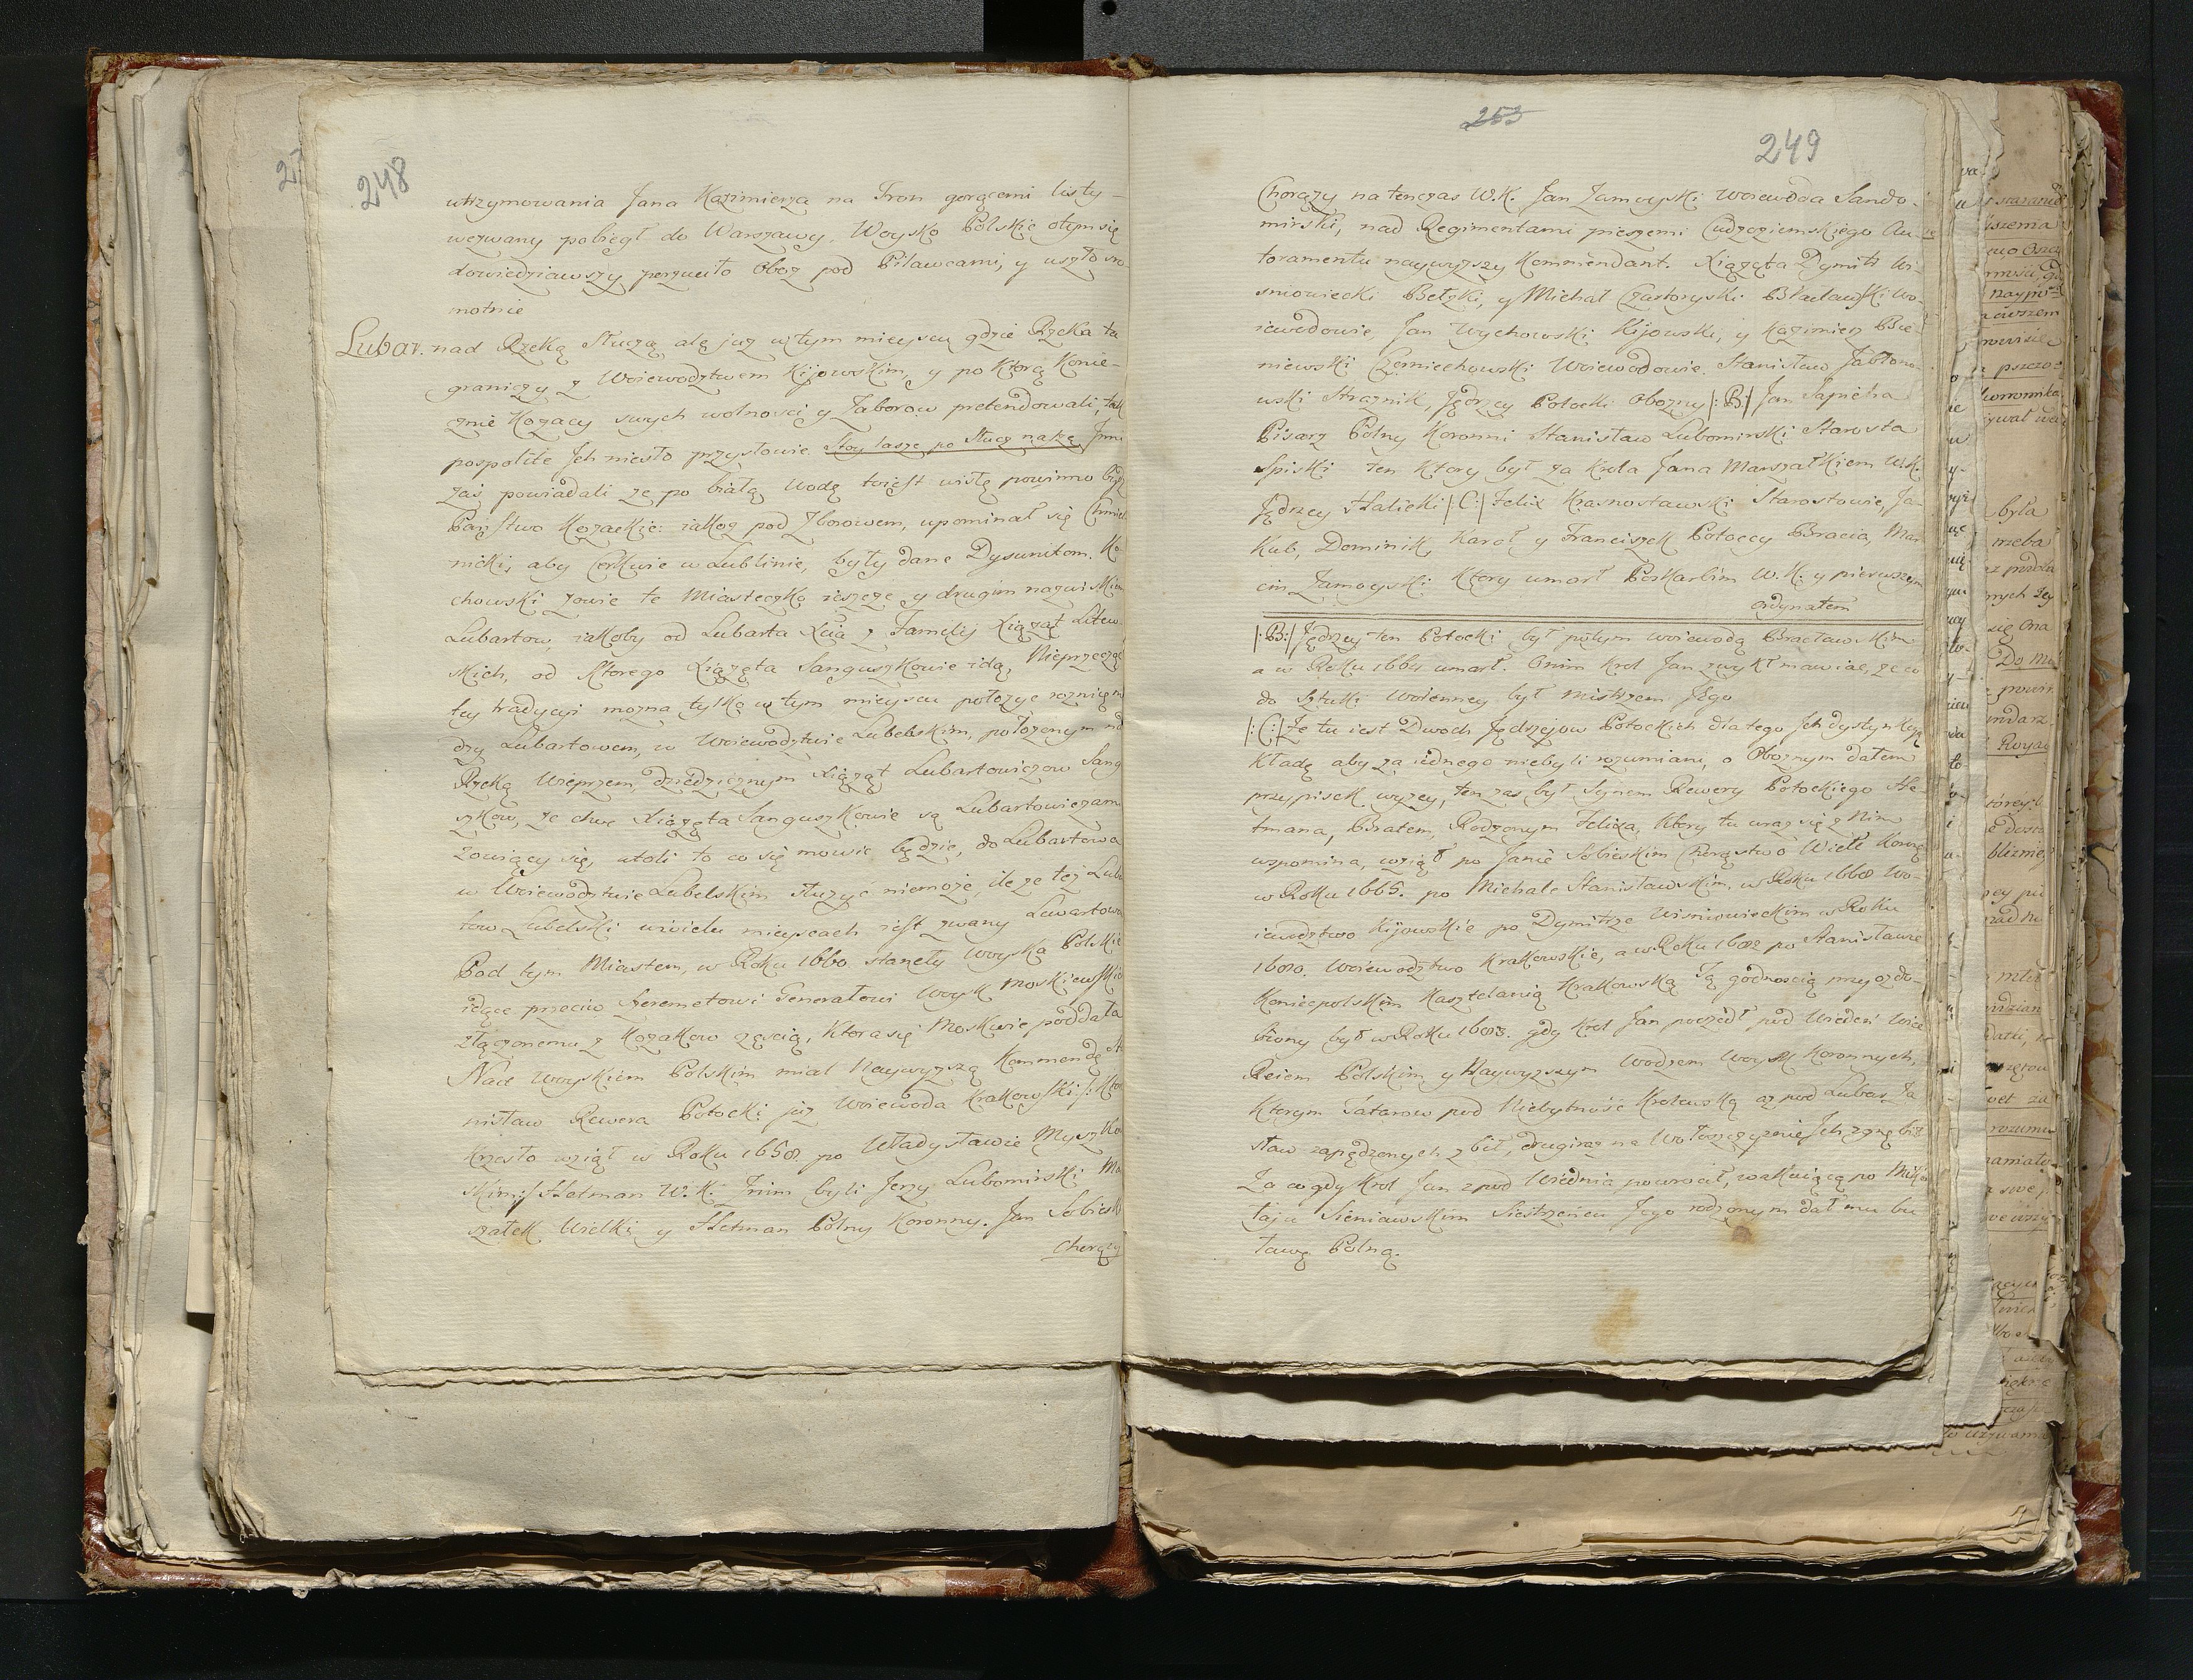 248
utrzymowania Jana Kazimierza na Tron gorącemi listy-
wezwany pobiegł do Warszawy. Woysko Polskie otym się
dowiedziawszy porzuciło Oboz pod Pilawcami, y uszło sro-
motnie
Lubar. nad Rzeką Słuczą ale juz wtym mieyscu gdzie Rzeka ta
graniczy z Woiewodztwem Kijowskim, y po ktorą konie-
cznie Kozacy swych wolnosci y Zaborow pretendowali, tak
pospolite Jch niesło przysłowie. Stoy lasze po Słucz nasze Jnni
zaś powiadali ze po białą Wodę to iest wisłę powinno bydz
Państwo Kozackie: iakoz pod Zborowem, upominał się Chmiel-
nicki, aby Cerkwie w Lublinie, były dane Dysunitom. Ko-
chowski zowie te Miasteczko ieszcze y drugim nazwiskiem
Lubartow, iakoby od Lubarta Xcia z Familij Xiąząt Litew-
skich, od ktorego Xiązęta Sanguszkowie idą, Nieprzecząc
tey tradycyi mozna tylko wtym mieysu połozyc roznicę mię
dzy Lubartowem, w Woiewodztwie Lubelskim, połozonym nad
Rzeką Wieprzem, dziedzicznym Xiąząt Lubartowiczow Sang
szkow, ze choc Xiązęta Sanguszkowie są Lubartowiczami
zowiący się, atoli to co się mowic będzie, do Lubartowa
w Woiewodztwie Lubelskim słuzyć niemoze, ile ze tez Luba
tow Lubelski wwielu mieyscach iest zwany Lewartowem
Pod tym Miastem, w Roku 1660 stanęły Woyska Polskie
idące przeciw Szeremetowi Generałowi Woysk Moskiewskich
złączonemu z Kozakow częscią, ktora się Moskwie poddała
Nad Woyskiem Polskim miał Naywyzszą Kommendę St
nisław Rewera Potocki juz Woiewoda Krakowski /: Ktor
krzesło wziął w Roku 1658. po Władysławie Myszkow
skim:/ Hetman W.K. Znim byli Jerzy Lubomirski Mar
szałek Wielki y Hetman Polny Koronny. Jan Sobieski
Chorązy
253
249
Chorązy natenczas W.K. Jan Zamoyski Woiewoda Sando-
mirski, nad Regimentami pieszemi Cudzoziemskiego Au-
toramentu naywyzszy Kommendant. Xiązęta Dymitr Wi-
sniowiecki Bełzki, y Michał Czartoryski Bracławski Wo-
iewodowie, Jan Wychowski Kijowski, y Kazimierz Bie-
niewski Czerniechowski Woiewodowie. Stanisław Jabłono-
wski Straznik, Jędrzey Potocki Obozny /:B:/ Jan Sapieha
Pisarz Polny Koronni Stanisław Lubomirski Starosta
Spiski ten ktory był za Krola Jana Marszałkiem W.K.
Jędrzey Halicki /:C:/ Felix Krasnostawski Starostowie, Ja-
kub, Dominik, Karol y Franciszek Potoccy Bracia, Mar-
cin Zamoyski ktory umarł Poskarbim W.K. y pierwszym
ordynatem
/:B:/ Jędrzey ten Potocki był potym woiewodą Bracławskim
a w Roku 1664 umarł. Onim Krol Jan zwykł mawiac, ze co
do Sztuki Woienney był Mistrzem Jego
/:C:/ Ze tu iest Dwoch Jędrzejow Potockich dlatego Jch dystynkcyą
Kładę aby za iednego niebyli rozumiani, o Oboznym dałem
przypisek wyzey, ten zas był Synem Rewery Potockiego He-
tmana, Bratem Rodzonym Felixa, ktory tu wraz się z Nim
wspomina, wziął po Janie Sobieskim Chorąstwo Wielk Koron
w Roku 1665. po Michale Stanisławskim, w Roku 1668 Wo-
iewodztwo Kijowskie po Dymitrze Wisniowieckim w Roku
1680. Woiewodztwo Krakowskie, a w Roku 1682 po Stanisławie
Koniecpolskim Kasztelanią Krakowską Tą godnoscią przyozdo-
biony był w Roku 1683. gdy Krol Jan poszedł pod Wiedeń Vice
Reiem Polskim y Naywyzszym Wodzem Woysk Koronnych,
Ktorym Tatarow pod Niebytność Krolewską az pod Lubar Za
sław zapędzonych zbił, drugi raz na Wołoszczyznie Jch zgnębił
Za co gdy Krol Jan zpod Wiednia powrocił, wakuiącą po Miko
łaju Sieniawskim Siestrzeńcu Jego rodzonym dał mu bu
ławę Polną.